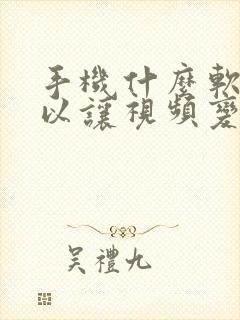 手機什麼軟
以讓視頻變
吳禮九